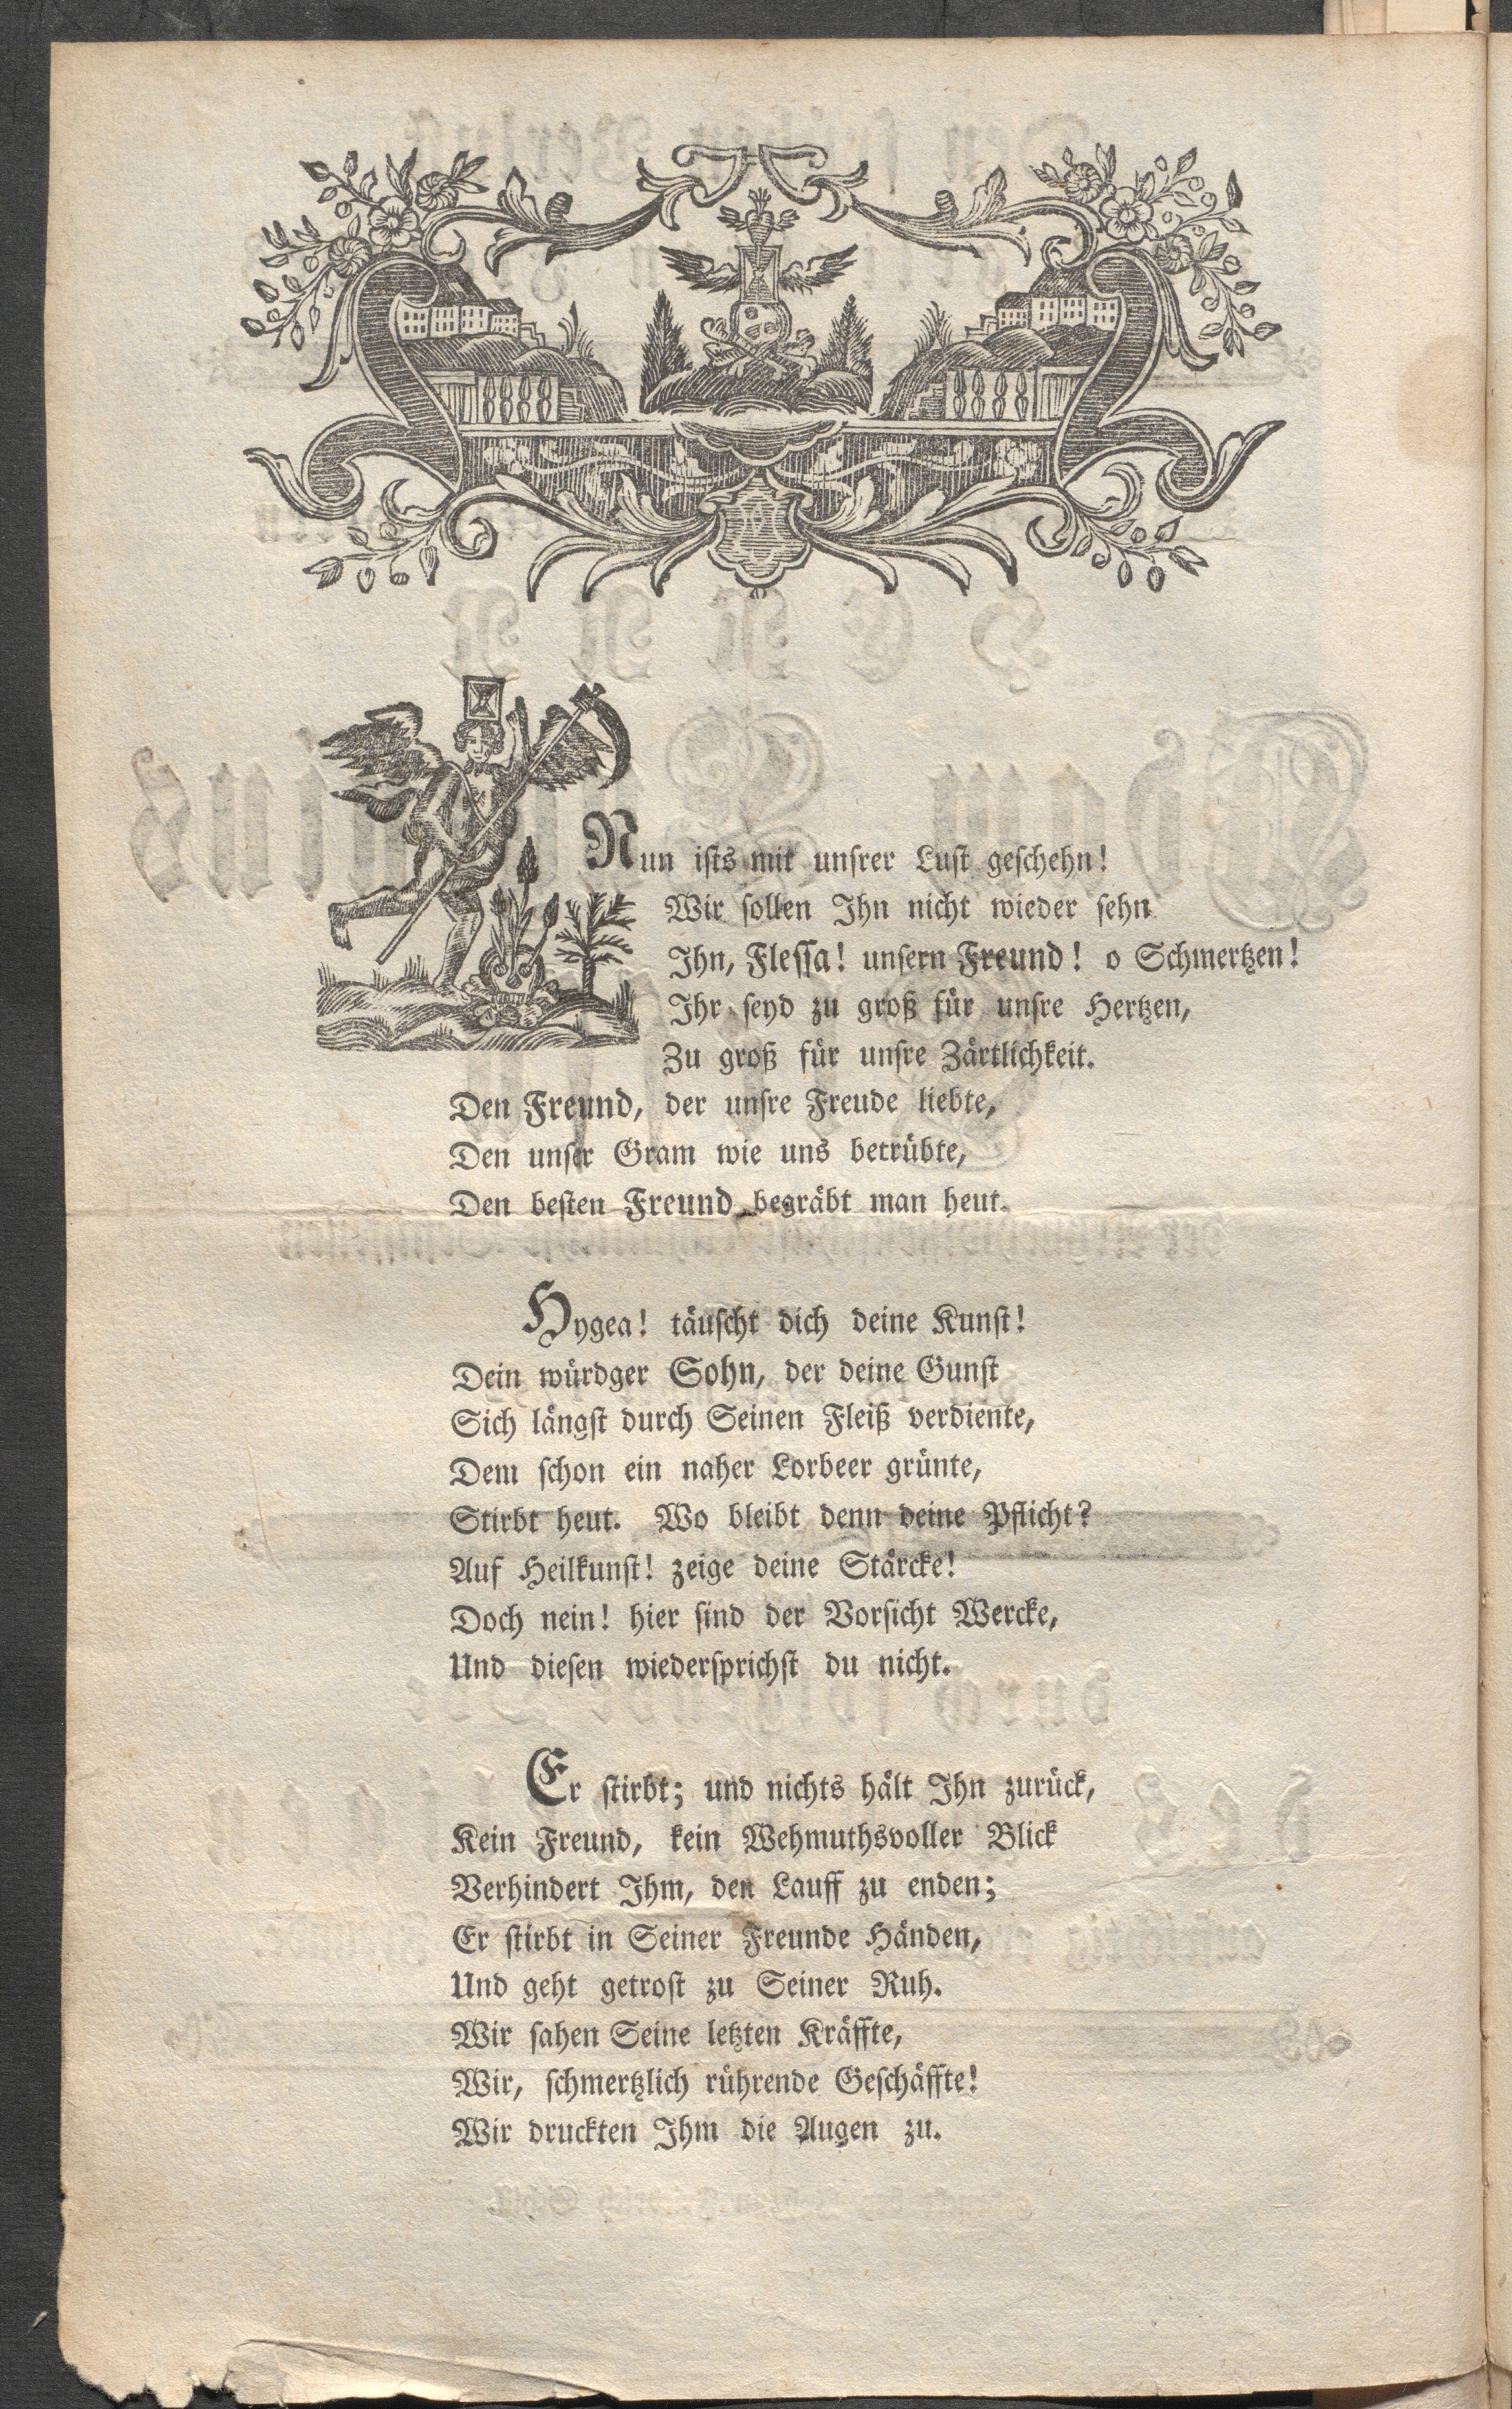 Nun ists mit unsrer Lust geschehn!
Wir sollen Ihn nicht wieder sehn
Ihn, Flessa! unsern Freund! o Schmertzen!
Ihr seyd zu groß für unsre Hertzen,
Zu groß für unsre Zärtlichkeit.
Den Freund, der unsre Freude liebte,
Den unser Gram wie uns betrübte,
Den besten Freund begräbt man heut.
Hygea! täuscht dich deine Kunst!
Dein würdger Sohn, der deine Gunst
Sich längst durch Seinen Fleiß verdiente,
Dem schon ein naher Lorbeer grünte,
Stirbt heut. Wo bleibt denn deine Pflicht?
Auf Heilkunst! zeige deine Stärcke!
Doch nein! hier sind der Vorsicht Wercke,
Und diesen wiedersprichst du nicht.
Er stirbt; und nichts hält Ihn zurück,
Kein Freund, kein Wehmuthsvoller Blick
Verhindert Ihm, den Lauff zu enden;
Er stirbt in Seiner Freunde Händen,
Und geht getrost zu Seiner Ruh.
Wir sahen Seine letzten Kräffte,
Wir, schmertzlich rührende Geschäffte!
Wir druckten Ihm die Augen zu.